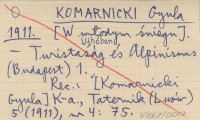 KOMARNICKI Gyula
1911. [W młodym śniegu].
Ujhóban
– Turistaság és Alpinismus
(Budapest) 1.
Rec.: [Komarnicki
Gyula] K-a., Taternik (Lwów)
5 (1911), nr 4: 75.